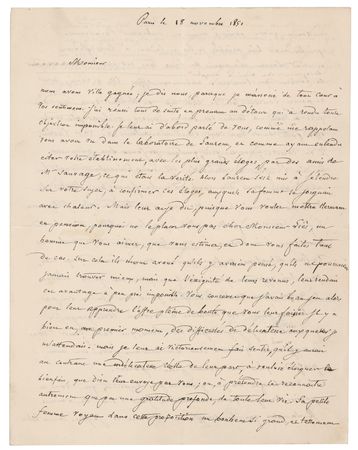 Paris le 18 novembre 1851
Monsieur
nous avons ville gagnée, je dis nous, parceque je m'associe de tout cœur à
vos sentimens. J'ai réussi tout de suite en prenant un détour qui a rendu toute
objection impossible. Je leur ai d'abord parlé de vous, comme me rappelant
vous avoir vu dans le laboratoire de Laurent, et comme ayant entendu
citer votre établissement, avec les plus grands éloges, par des amis de
Mr Sauvage, ce qui était la vérité. Alors Laurent s'est mis à s'étendre
sur votre sujet, à confirmer ces éloges, auxquels sa femme se joignait
avec chaleur. Mais leur ai-je dit, puisque vous voulez mettre Hermann
en pension, pourquoi ne le placez vous pas chez Monsieur
homme que vous aimez, que vous estimez, et dont vous faites tant
de cas. Sur cela ils m'ont avoué qu'ils y avaient pensé, qu'ils ne pourraient
jamais trouver mieux, mais que l'exiguité de leurs revenus, leur rendait
cet avantage à peu près impossible. Vous concevez que j'avais beau jeu alors
pour leur apprendre l'offre pleine de bonté que vous leur faisiez. Il y a
bien eu, au premier moment, des difficultés de délicatesse auxquelles je
m'attendais. mais je leur ai victorieusement fait sentir, qu'il y aurait
au contraire une indélicatesse réelle de leur part, à vouloir éloigner le
bienfait que Dieu leur envoye par vous, ou, à prétendre le reconnaître
autrement que par une gratitude profonde, de toute leur vie. La petite
femme voyait dans cette proposition un bonheur si grand,